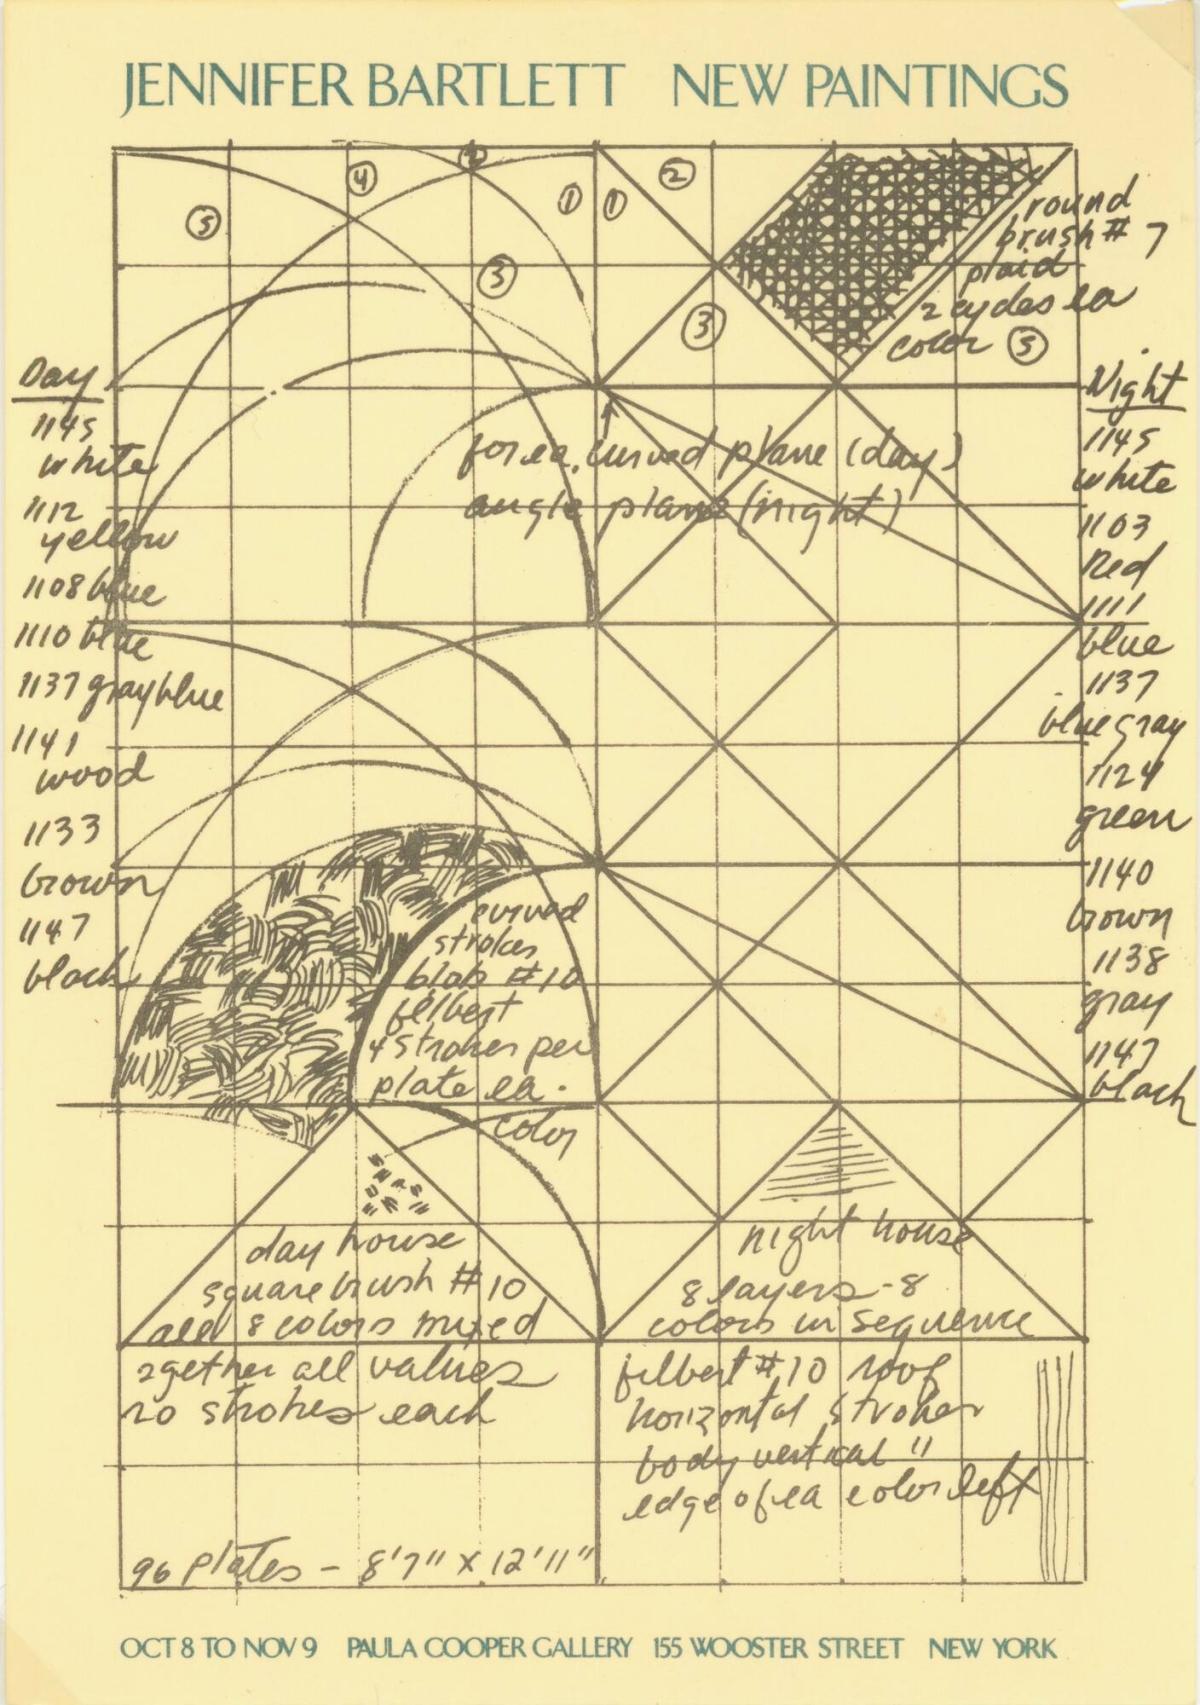 JENNIFER BARTLETT NEW PAINTINGS
5
4
2
1
1
2
3
3
round
brush # 7
plaid
2 cycles ea
color 5
Day
1145
white
1112
yellow
1108 blue
1110 blue
1137 grayblue
1141
wood
1133
brown
1147
black
for ea. curved plane (day)
angle plane (night)
Night
1145
white
1103
Red
1111
blue
1137
blue gray
1124
green
1140
brown
1138
gray
1147
black
curved
strokes
blob #10
filbert
4 strokes per
plate ea.
color
day house
square brush #10
all 8 colors mixed
2gether all values
20 strokes each
night house
8 layers - 8
colors in sequence
filbert #10 roof
horizontal strokes
body vertical "
edge of ea color left
96 plates - 8'7" X 12'11"
OCT 8 TO NOV 9 PAULA COOPER GALLERY 155 WOOSTER STREET NEW YORK